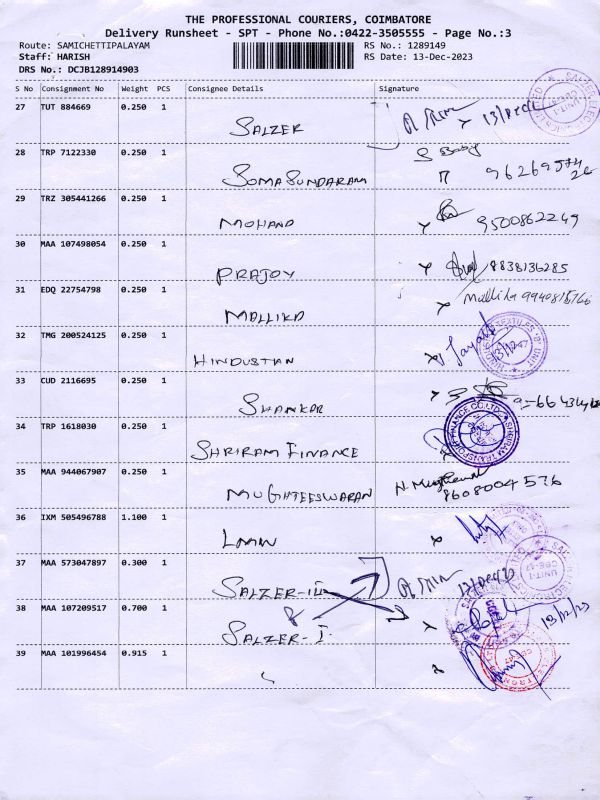 THE PROFESSIONAL COURIERS, COIMBATORE
Delivery Runsheet - SPT - Phone No.:0422-3505555 - Page No.:3
Route: SAMICHETTIPALAYAM RS No.: 1289149
Staff: HARISH RS Date: 13-Dec-2023
DRS No.: DCJB128914903
S No Consignment No Weight PCS Consignee Details Signature
27 TUT 884669 0.250 1
SALZER
28 TRP 7122330 0.250 1
SOMASUNDARAM
29 TRZ 305441266 0.250 1
MOHAND 9500862249
30 MAA 107498054 0.250 1
PRAJOY 8838136285
31 EDQ 22754798 0.250 1
MALLIKA Mallika
32 TMG 200524125 0.250 1
HINDUSTIAN
33 CUD 2116695 0.250 1
SHANKAR
34 TRP 1618030 0.250 1
SHRIRAM FINANCE
35 MAA 944067907 0.250 1
MUGHTEESWARAN 8608004576
36 IXM 505496788 1.100 1
LMW
37 MAA 573047897 0.300 1
SALZER-III
38 MAA 107209517 0.700 1
SALZER-I 13/12/23
39 MAA 101996454 0.915 1